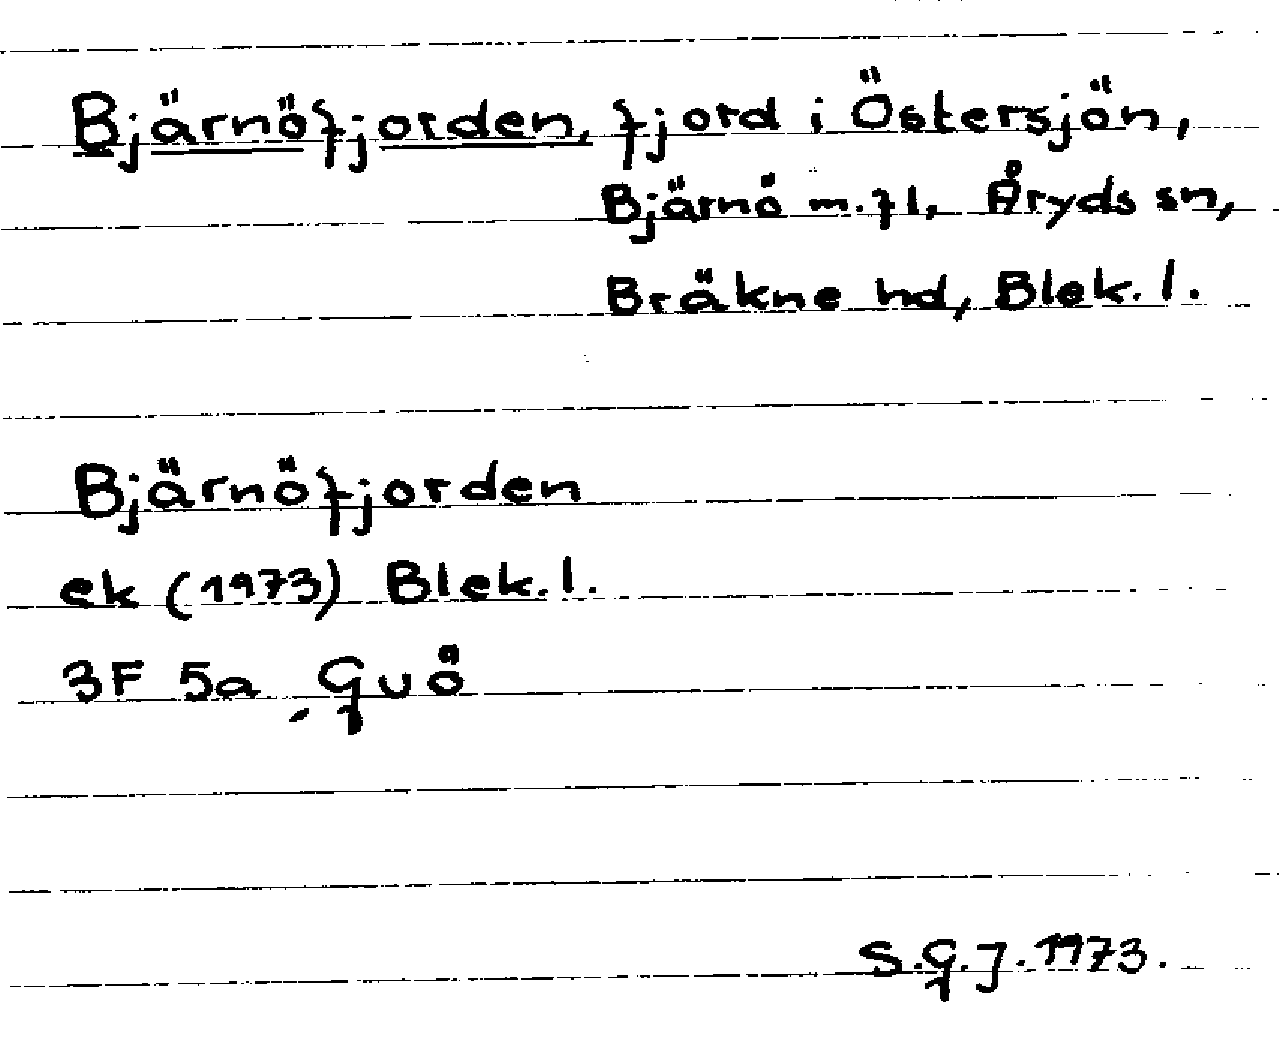 Bjärnöfjorden, fjord i Östersjön,
Bjärnö m.fl, Åryds sn,
Bräkne hd, Blek. l.
Bjärnöfjorden
ek (1973) Blek. l.
3F 5a, Guö
S.G.J. 1973.